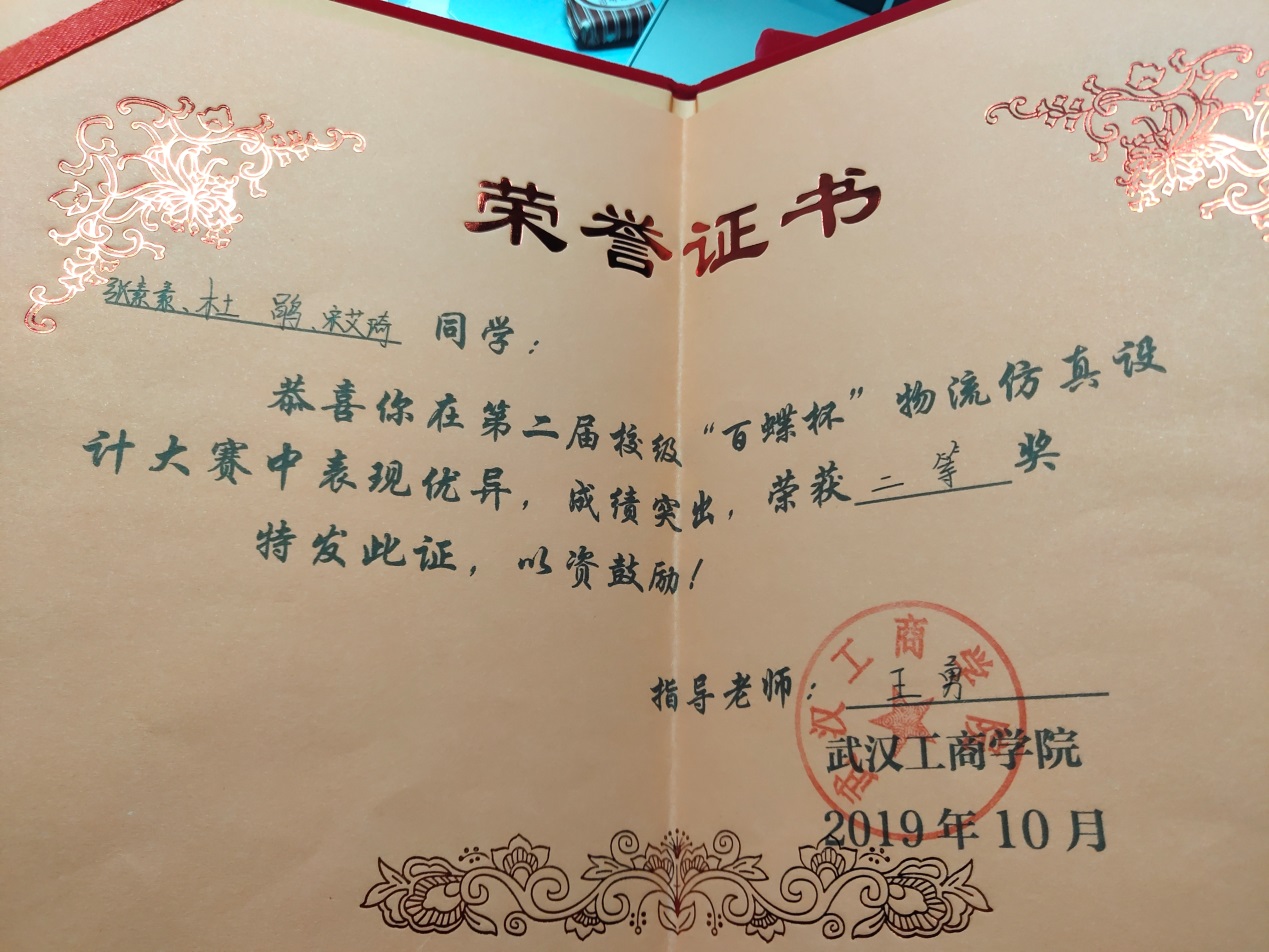 荣誉证书
张素素、杜鹃、宋艾琦 同学：
恭喜你在第二届校级“百蝶杯”物流仿真设
计大赛中表现优异，成绩突出，荣获二等奖
特发此证，以资鼓励！
指导老师：王勇
武汉工商学院
武汉工商学院
2019年10月